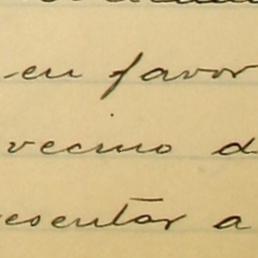 en favor
vecino d
esentar a